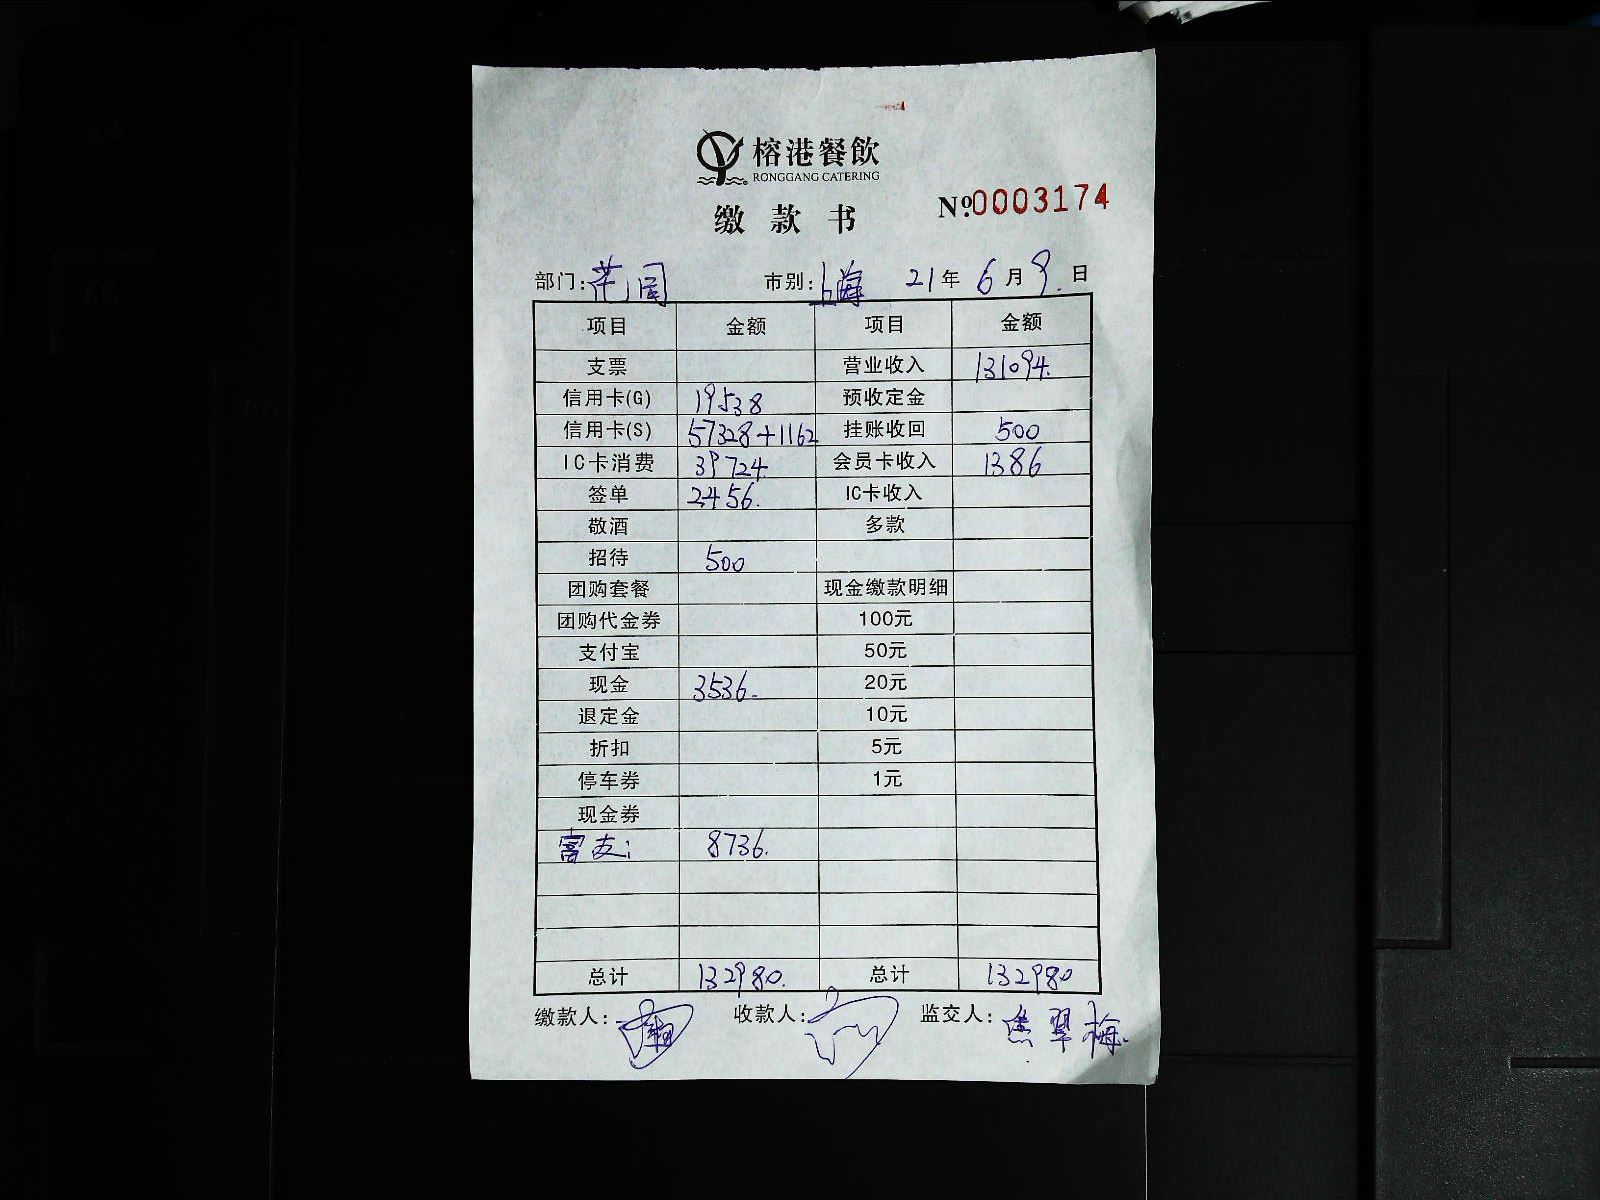 榕港餐飲
RONGGANG CATERING
缴款书
Nº.0003174
部门: 花园 市别: 上海 21年 6月 9.日
项目 金额 项目 金额
支票 营业收入 131094.
信用卡(G) 19538 预收定金
信用卡(S) 57328+1162 挂账收回 500
IC卡消费 39724 会员卡收入 1386
签单 2456. IC卡收入
敬酒 多款
招待 500
团购套餐 现金缴款明细
团购代金券 100元
支付宝 50元
现金 3536. 20元
退定金 10元
折扣 5元
停车券 1元
现金券
富友: 8736.
总计 132980. 总计 132980
缴款人: 收款人: 监交人: 焦翠梅.